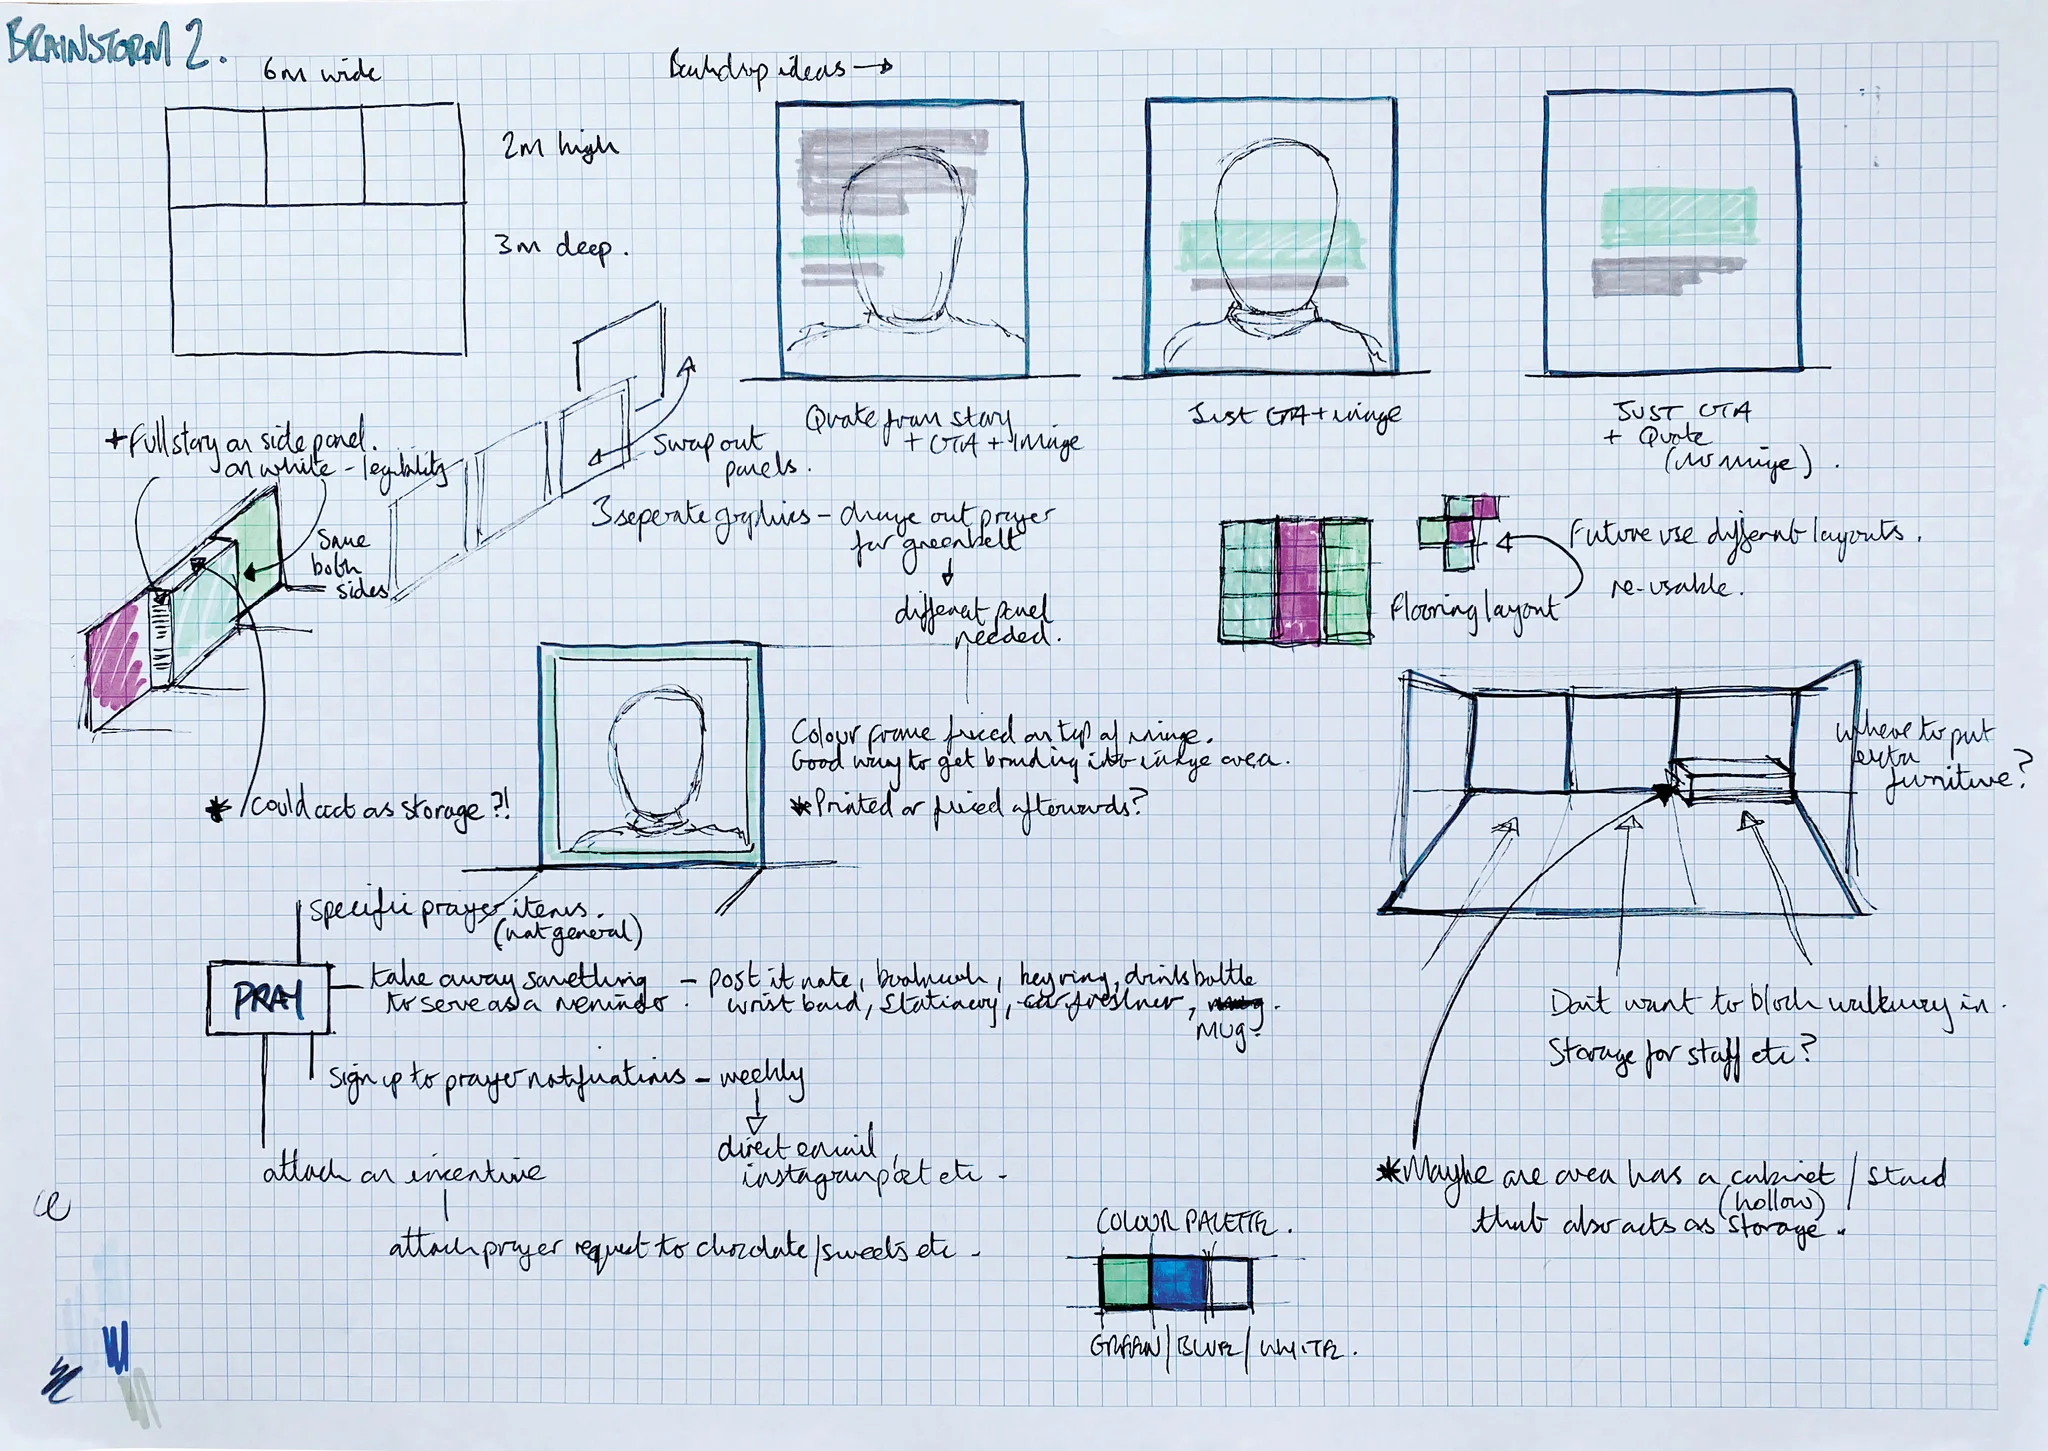 BRAINSTORM 2.
6m wide
2m high
3m deep.
Backdrop ideas →
Quote from story
+ CTA + image
Just CTA + image
JUST CTA
+ Quote
(no image).
+ Full story on side panel.
on white - legibility
Same
both
sides
Swap out
panels.
3 seperate graphics - change out prayer
for greenbelt
different panel
needed.
Flooring layout
Future use different layouts.
re-usable.
* Could act as storage?!
Colour frame fixed on top of image.
Good way to get branding into image area.
* Printed or fixed afterwards?
Where to put
extra
furniture?
Don't want to block walkway in.
Storage for staff etc?
* Maybe one area has a cabinet / stand
(hollow)
that also acts as storage.
PRAY
specific prayer items.
(not general)
take away something - post it note, bookmark, keyring, drinks bottle
to serve as a reminder. wrist band, stationery, car freshner, mug.
MUG.
sign up to prayer notifications - weekly
direct email,
instagram post etc -
attach an incentive
attach prayer request to chocolate/sweets etc -
COLOUR PALETTE.
GREEN/BLUE/WHITE.